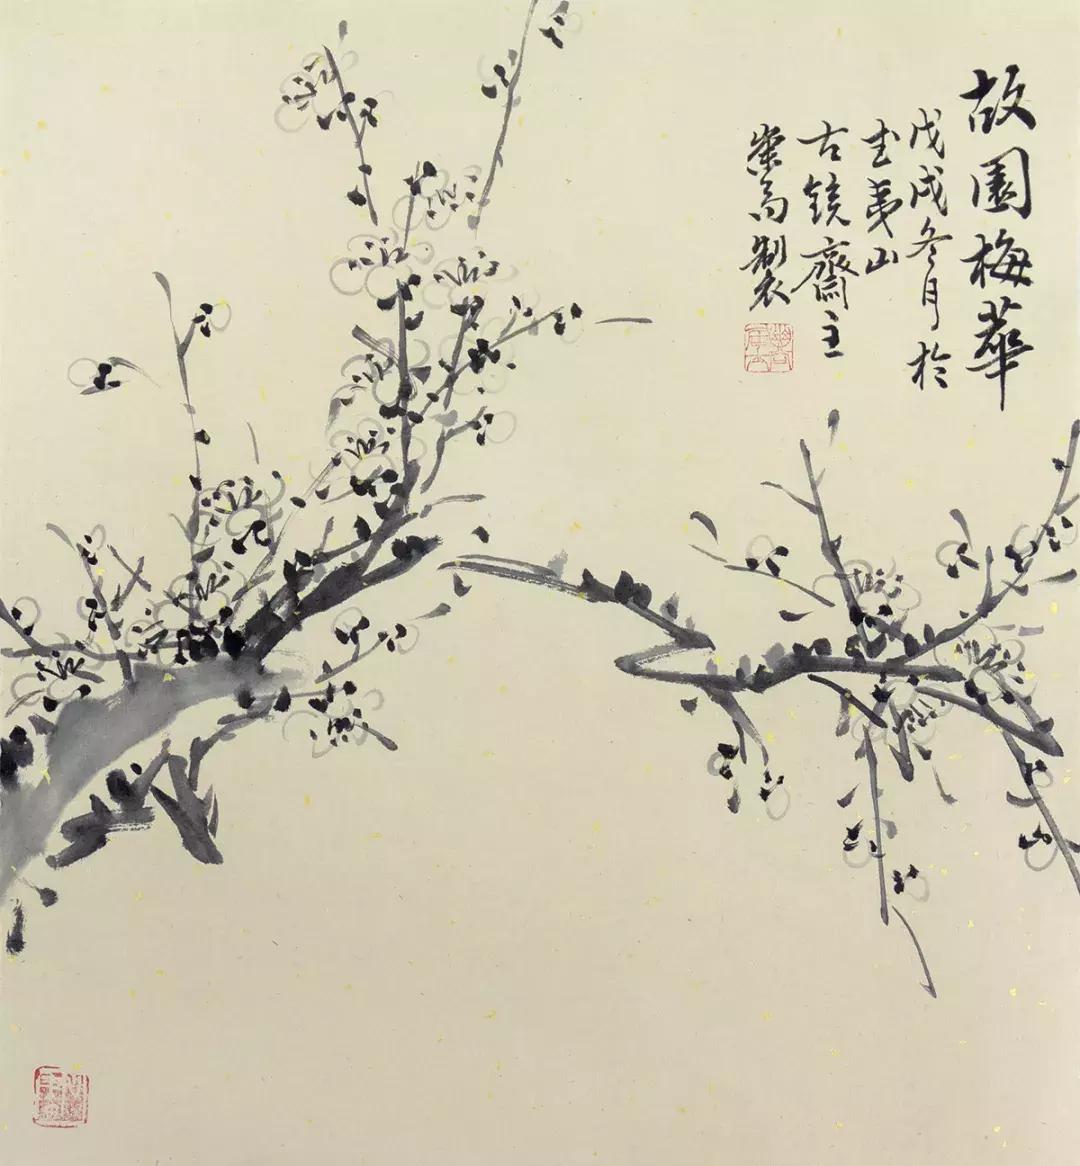 故園梅華
戊戌冬月於
武夷山
古鏡齋主
崇高製